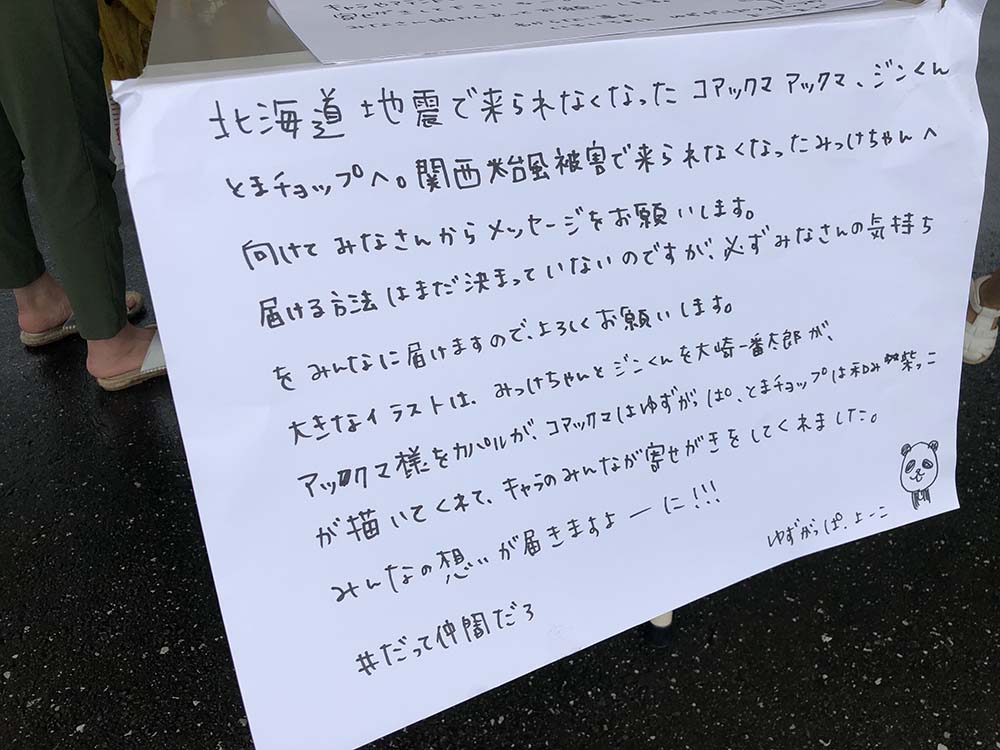 北海道 地震で来られなくなった コアックマ アックマ、ジンくん
とまチョップへ。関西台風被害で来られなくなったみっけちゃんへ
向けて みなさんから メッセージを お願いします。
届ける方法はまだ決まっていないのですが、必ずみなさんの気持ち
を みんなに届けますので、よろしくお願いします。
大きなイラストは、みっけちゃんと ジンくんを 大崎一番太郎が、
アックマ様を カパルが、コアックマはゆずがっぱ、とまチョップは和み柴っこ
が描いてくれて、キャラのみんなが寄せがきをしてくれました。
みんなの想いが届きますよーに!!!
ゆずがっぱ、よーこ
#だって仲間だろ